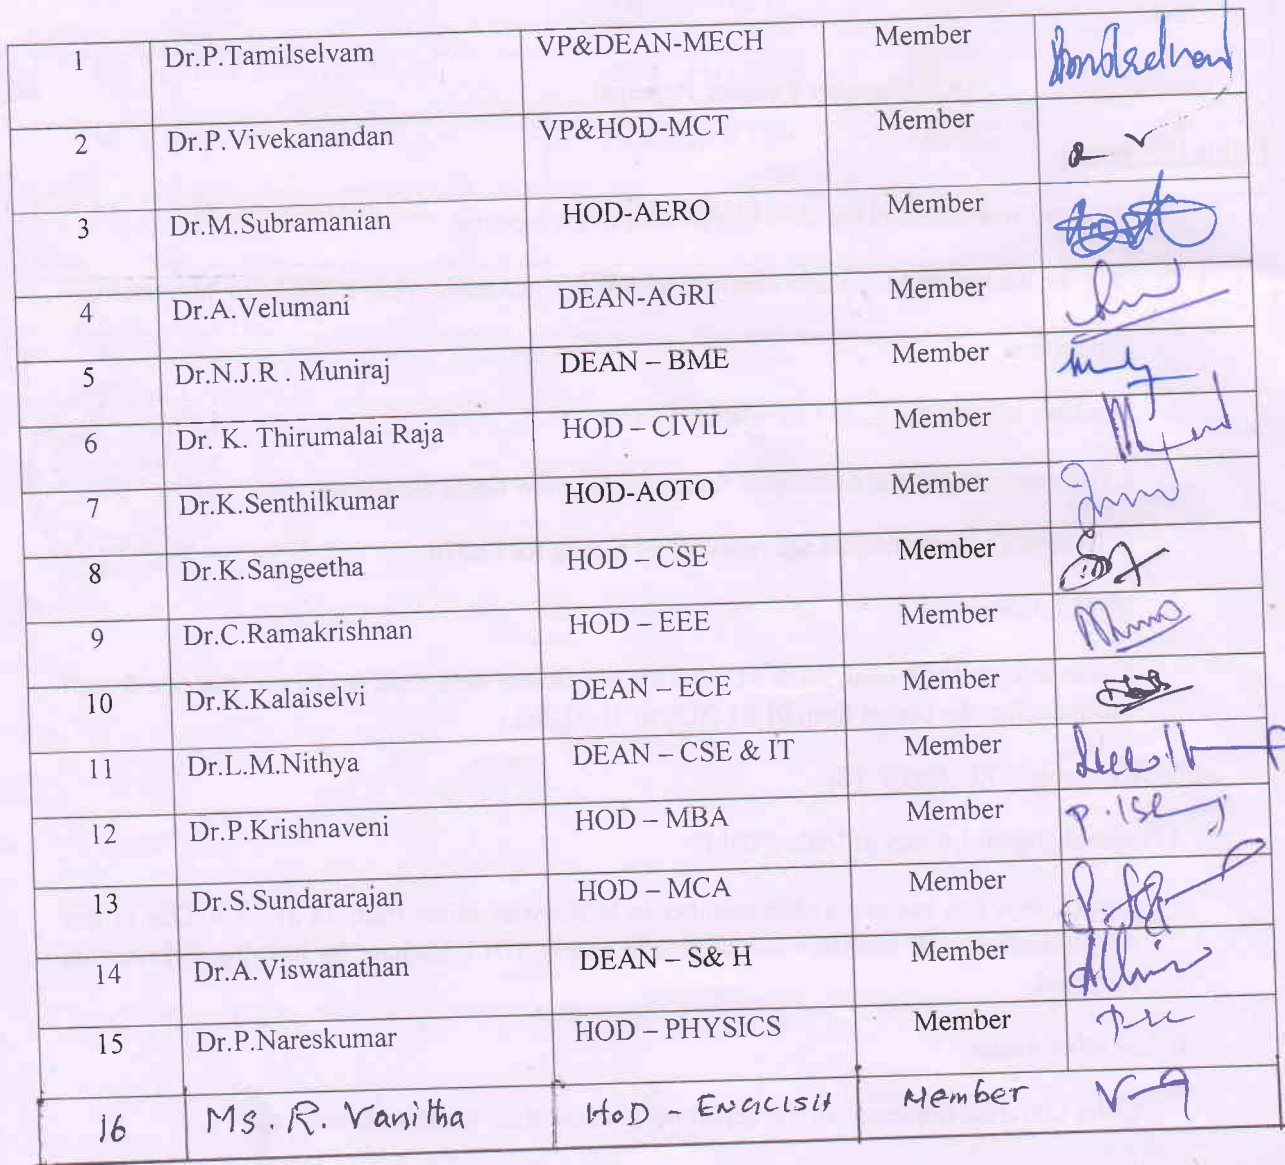 1 Dr.P.Tamilselvam VP&DEAN-MECH Member
2 Dr.P.Vivekanandan VP&HOD-MCT Member
3 Dr.M.Subramanian HOD-AERO Member
4 Dr.A.Velumani DEAN-AGRI Member
5 Dr.N.J.R . Muniraj DEAN – BME Member
6 Dr. K. Thirumalai Raja HOD – CIVIL Member
7 Dr.K.Senthilkumar HOD-AOTO Member
8 Dr.K.Sangeetha HOD – CSE Member
9 Dr.C.Ramakrishnan HOD – EEE Member
10 Dr.K.Kalaiselvi DEAN – ECE Member
11 Dr.L.M.Nithya DEAN – CSE & IT Member
12 Dr.P.Krishnaveni HOD – MBA Member
13 Dr.S.Sundararajan HOD – MCA Member
14 Dr.A.Viswanathan DEAN – S& H Member
15 Dr.P.Nareskumar HOD – PHYSICS Member
16 Ms. R. Vanitha HoD - ENGLISH Member